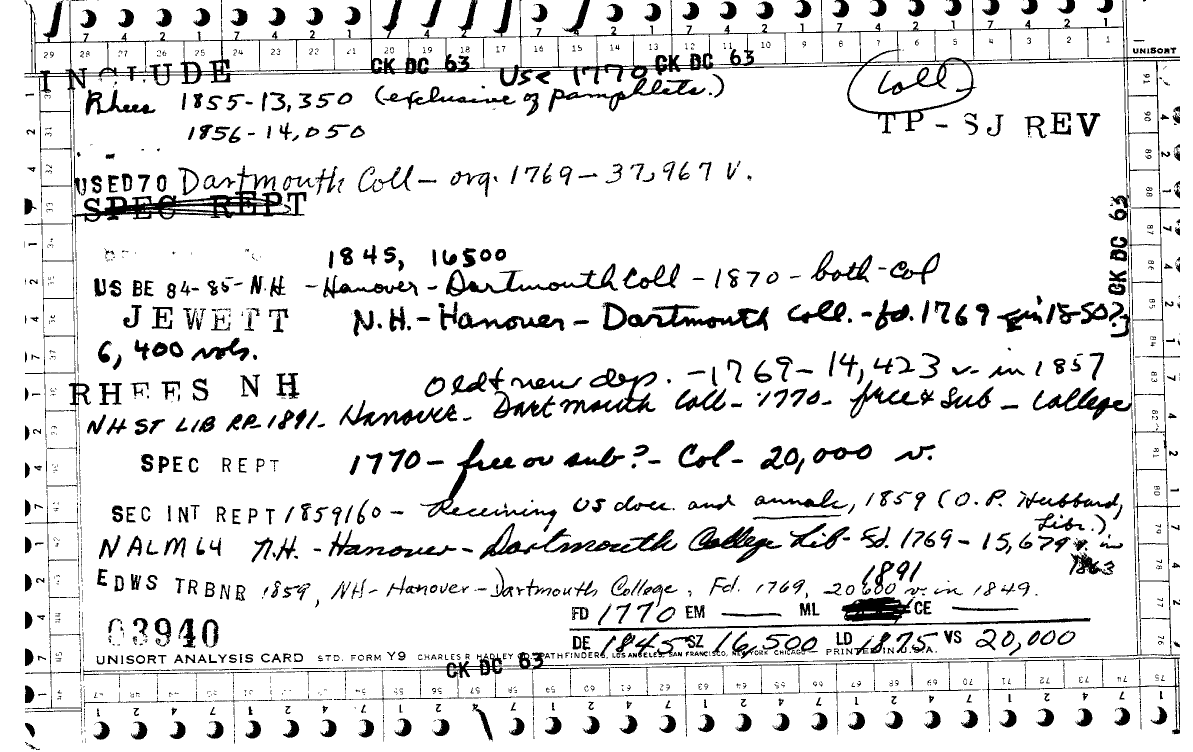 INCLUDE CK DC 63 Use 1770 CK DC 63 Coll
Rhees 1855-13,350 (exclusive of pamphlets.)
1856-14,050
TP-SJ REV
USED70 Dartmouth Coll- org. 1769-37,967 V.
SPEC REPT
CK DC 63
1845, 16500
US BE 84-85-N.H -Hanover-Dartmouth Coll -1870- both-Col
JEWETT N.H.-Hanover-Dartmouth Coll.-fd. 1769
6,400 vols.
RHEES NH Old & new dep. -1769-14,423 v. in 1857
NH ST LIB RP 1891- Hanover- Dartmouth Coll- 1770- free & Sub - College
SPEC REPT 1770- free or sub?- Col- 20,000 v.
SEC INT REPT 1859/60- Receiving US docs. and annals, 1859 (O.P. Hubbard, Libr.)
NALM64 N.H. -Hanover-Dartmouth College Lib- Fd. 1769-15,679 v. in 1863
EDWS TRBNR 1859, NH-Hanover-Dartmouth College, Fd. 1769, v. in 1849.
1891
FD 1770 EM — ML CE —
03940
DE 1845 SZ 16,500 LD 1875 VS 20,000
UNISORT ANALYSIS CARD STD. FORM Y9 CHARLES R HADLEY CO. PATHFINDERS, LOS ANGELES, SAN FRANCISCO, NEW YORK CHICAGO PRINTED IN U.S.A.
CK DC 63
UNISORT